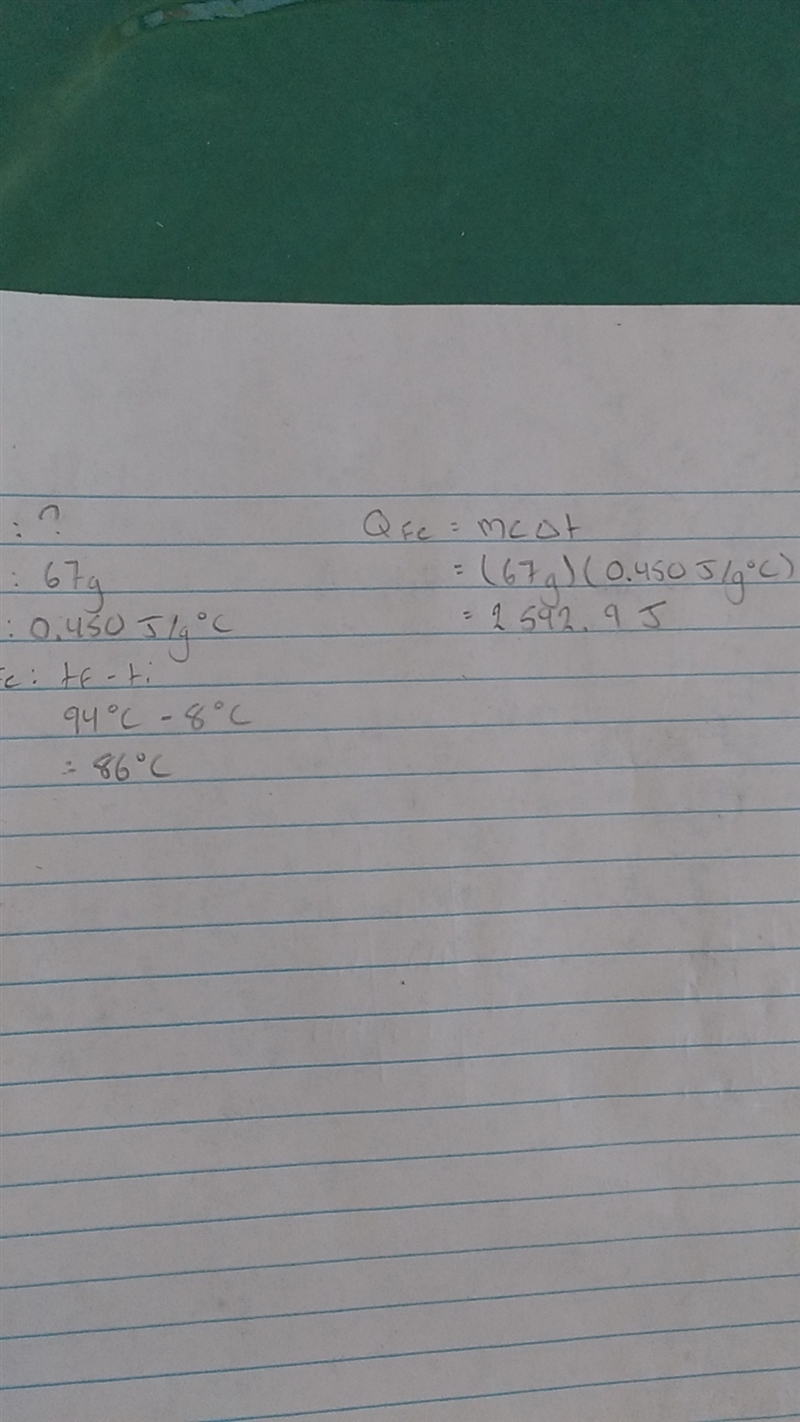 : ?
: 67g
: 0.450 J/g°C
c: tf - ti
94°C - 8°C
= 86°C
QFe = mcΔt
= (67g)(0.450 J/g°C)
= 2 592.9 J